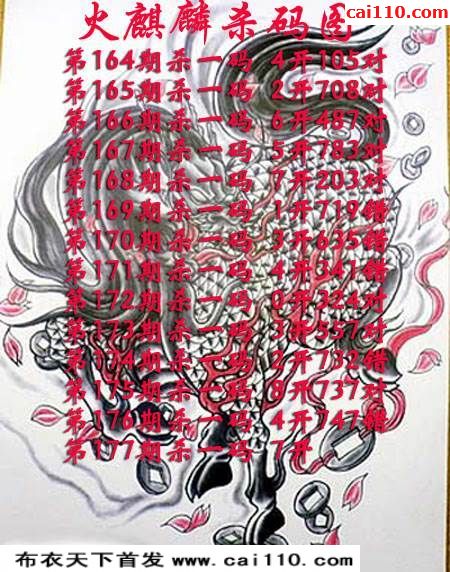 cai110.com
火麒麟杀码图
第164期杀一码 4开105对
第165期杀一码 2开708对
第166期杀一码 6开487对
第167期杀一码 5开783对
第168期杀一码 7开203对
第169期杀一码 1开719错
第170期杀一码 3开635错
第171期杀一码 4开341错
第172期杀一码 0开324对
第173期杀一码 3开557对
第174期杀一码 2开732错
第175期杀一码 8开737对
第176期杀一码 4开747错
第177期杀一码 7开
布衣天下首发 www.cai110.com